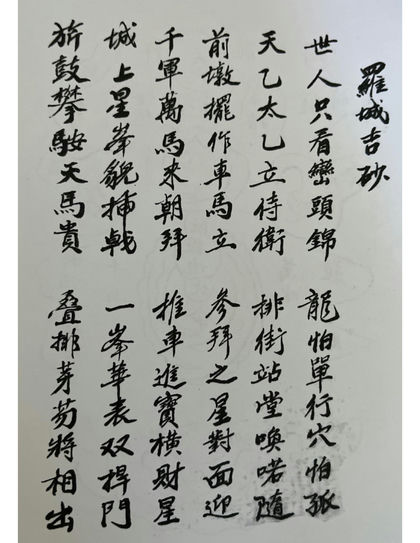 羅城吉砂
世人只看巒頭錦 龍怕單行穴怕孤
天乙太乙立侍衛 排衙站堂喚喏隨
前墩擺作車馬立 參拜之星對面迎
千軍萬馬來朝拜 推車進寶橫財星
城上星峯貌插戟 一峯華表双捍門
旂鼓攀鞍天馬貴 叠排芽笏將相出